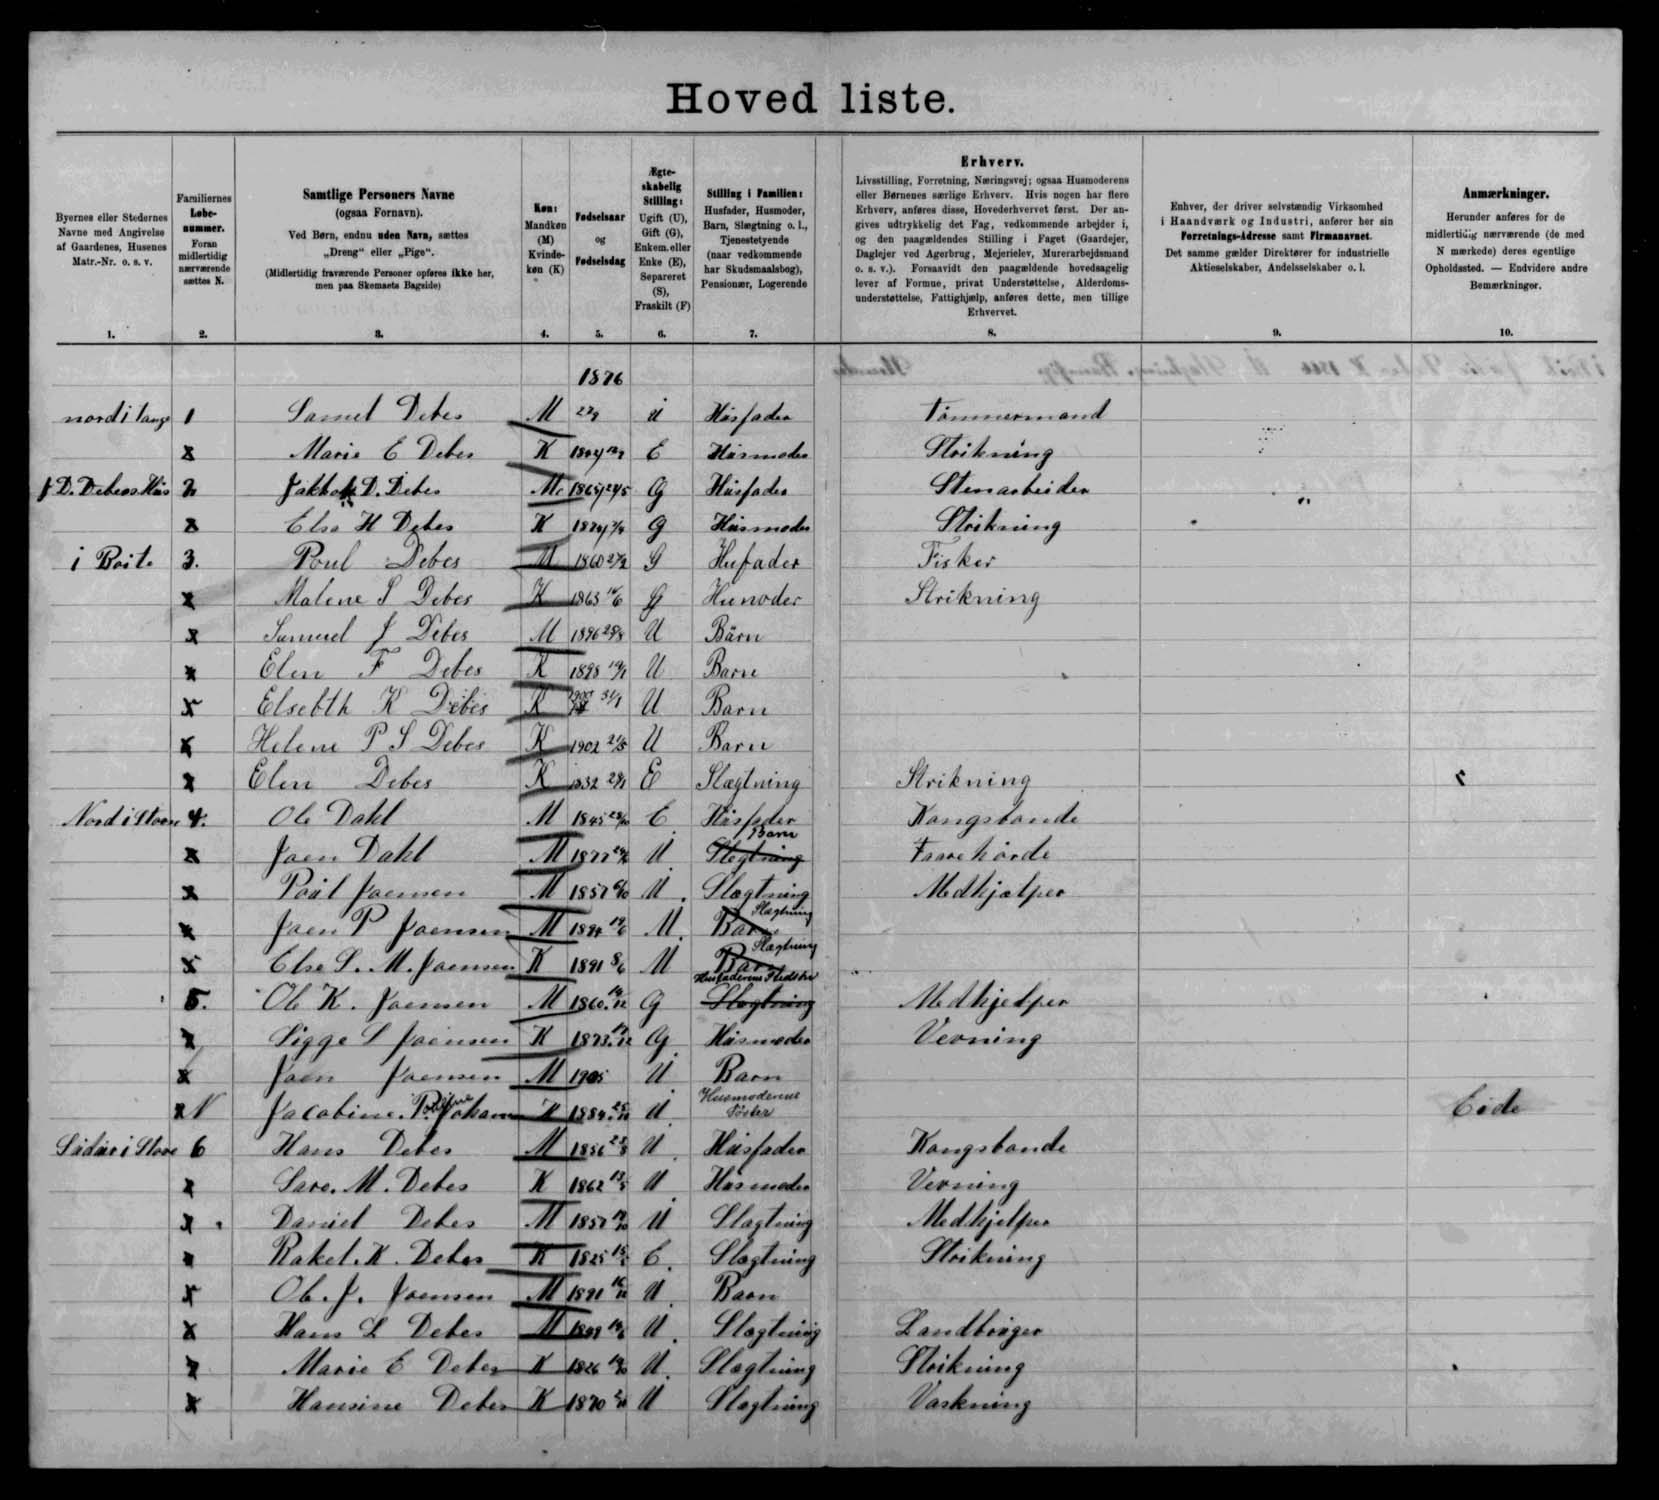 Hoved liste.
Byernes eller Stedernes
Navne med Angivelse
af Gaardenes, Husenes
Matr.-Nr. o. s. v.
1.
Familiernes
Løbe-
nummer.
Foran
midlertidig
nærværende
sættes N.
2.
Samtlige Personers Navne
(ogsaa Fornavn).
Ved Børn, endnu uden Navn, sættes
„Dreng“ eller „Pige“.
(Midlertidig fraværende Personer opføres ikke her,
men paa Skemaets Bagside)
3.
Køn:
Mandkøn
(M)
Kvinde-
køn (K)
4.
Fødselsaar
og
Fødselsdag
5.
Ægte-
skabelig
Stilling:
Ugift (U),
Gift (G),
Enkem. eller
Enke (E),
Separeret
(S),
Fraskilt (F)
6.
Stilling i Familien:
Husfader, Husmoder,
Barn, Slægtning o. l.,
Tjenestetyende
(naar vedkommende
har Skudsmaalsbog),
Pensionær, Logerende
7.
Erhverv.
Livsstilling, Forretning, Næringsvej; ogsaa Husmoderens
eller Børnenes særlige Erhverv. Hvis nogen har flere
Erhverv, anføres disse, Hovederhvervet først. Der an-
gives udtrykkelig det Fag, vedkommende arbejder i,
og den paagældendes Stilling i Faget (Gaardejer,
Daglejer ved Agerbrug, Mejerielev, Murerarbejdsmand
o. s. v.). Forsaavidt den paagældende hovedsagelig
lever af Formue, privat Understøttelse, Alderdoms-
understøttelse, Fattighjælp, anføres dette, men tillige
Erhvervet.
8.
Enhver, der driver selvstændig Virksomhed
i Haandværk og Industri, anfører her sin
Forretnings-Adresse samt Firmanavnet.
Det samme gælder Direktører for industrielle
Aktieselskaber, Andelsselskaber o. l.
9.
Anmærkninger.
Herunder anføres for de
midlertidig nærværende (de med
N mærkede) deres egentlige
Opholdssted. — Endvidere andre
Bemærkninger.
10.
1876
nord i tange 1 Samel Debes M 2/9 U Husfader Tømmermand
x Marie E Debes K E Husmoder Strikning
J D. Debeas Hus 2 Jakkob D. Debes M 1865 G Husfader Stenarbeider
x Else H Debes K G Husmoder Strikning
i Boit. 3. Poul Debes M 1860 G Hufader Fisker
x Malene S Debes K 1863 G Humoder Strikning
x Samuel J Debes M 1896 U Barn
x Elen F Debes K 1898 U Barn
x Elsebth K Debes K 31/1 U Barn
x Helene P S Debes K 1902 21/5 U Barn
x Elen Debes K 1832 E Slægtning Strikning
Nord i Stove 4. Ole Dahl M 1845 E. Husfader Kongsbonde
x Joen Dahl M 1877 U Slegtning Barn Faarehørde
x Poul Joensen M 1857 U. Slægtning Medhjælper
x Joen P Joensen M 1894 U. Barn Slægtning
x Else S. M. Joensen K 1891 8/6 U Barn Slægtning
5. Ole K. Joensen M 1860 G Slegtning Medhjelper
x Sigge S Joensen K 1873 G Husmoder Verning
x Joen Joensen M 1905 U Barn
x N Jacobine K 1884 U Husmoderens Söster Eide
Sudur i Stove 6 Hans Debes M 1856 U. Husfader Kongsbonde
x Sare. M. Debes K 1862 13/5 U Husmoder Verning
x Daniel Debes M 1857 U Slægtning Medhjelper
x Rakel. K. Debes K 1825 E. Slægtning Strikning
x Ole. J. Joensen M 1891 U Barn
x Hans L Debes M U. Slægtning Landbruger
x Marie E Debes K 1826 U. Slægtning Strikning
x Hansine Debes K 1870 U Slægtning Vaskning